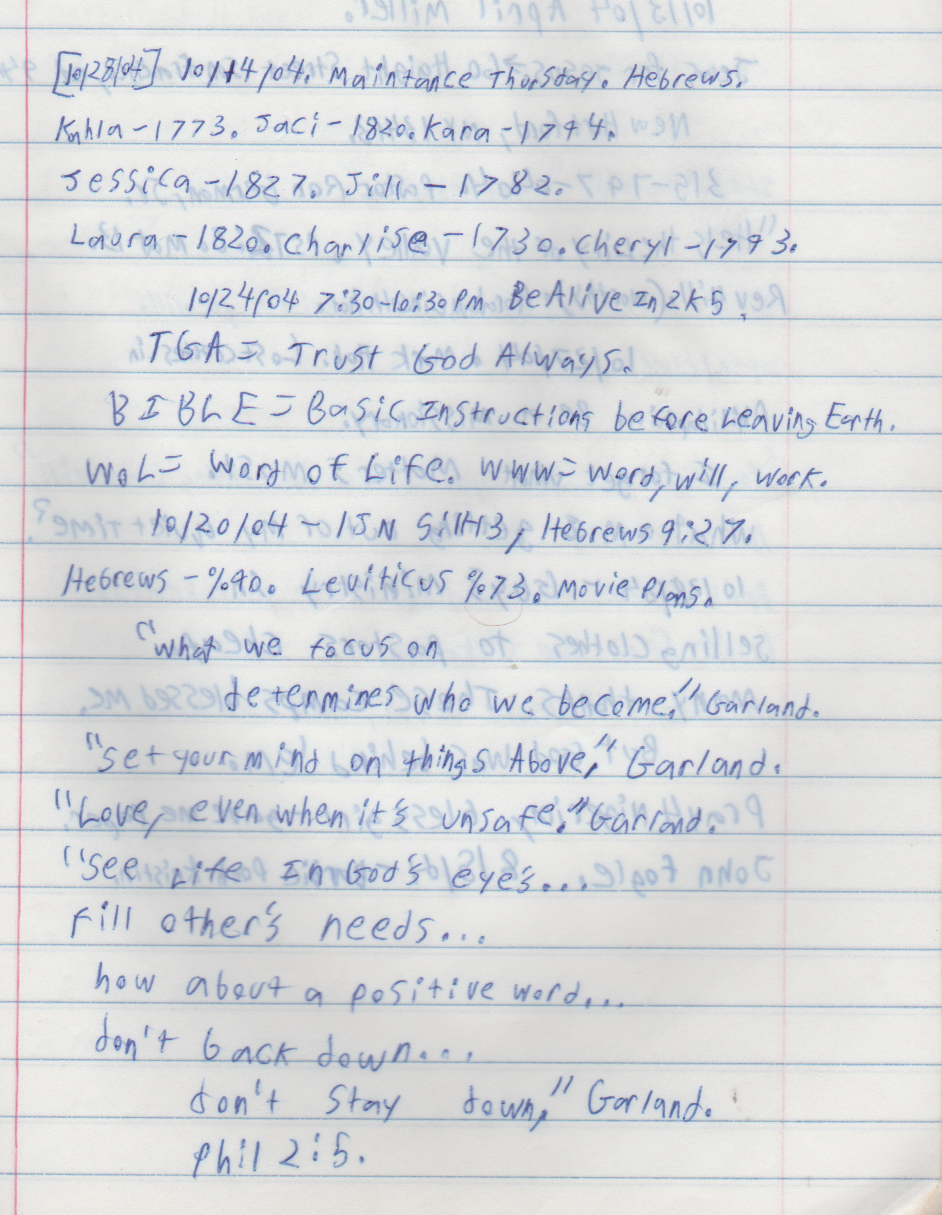 [10/28/04] 10/14/04. Maintance Thursday. Hebrews.
Kahla-1773. Jaci-1820. Kara-1794.
Jessica-1827. Jill-1782.
Laura-1820. Charlise-1730. Cheryl-1793.
10/24/04 7:30-10:30pm Be Alive In 2K5.
TGA = Trust God Always.
BIBLE = Basic Instructions before Leaving Earth.
WoL = Word of Life. WWW = Word, will, work.
10/20/04 - 1JN 5:11-13, Hebrews 9:27.
Hebrews - %90. Leviticus %73. Movie Plans.
"what we focus on
determines who we become," Garland.
"set your mind on things Above," Garland.
"Love, even when it's unsafe." Garland.
"See Life In God's eye's...
Fill other's needs...
how about a positive word...
don't back down...
don't stay down," Garland.
Phil 2:5.